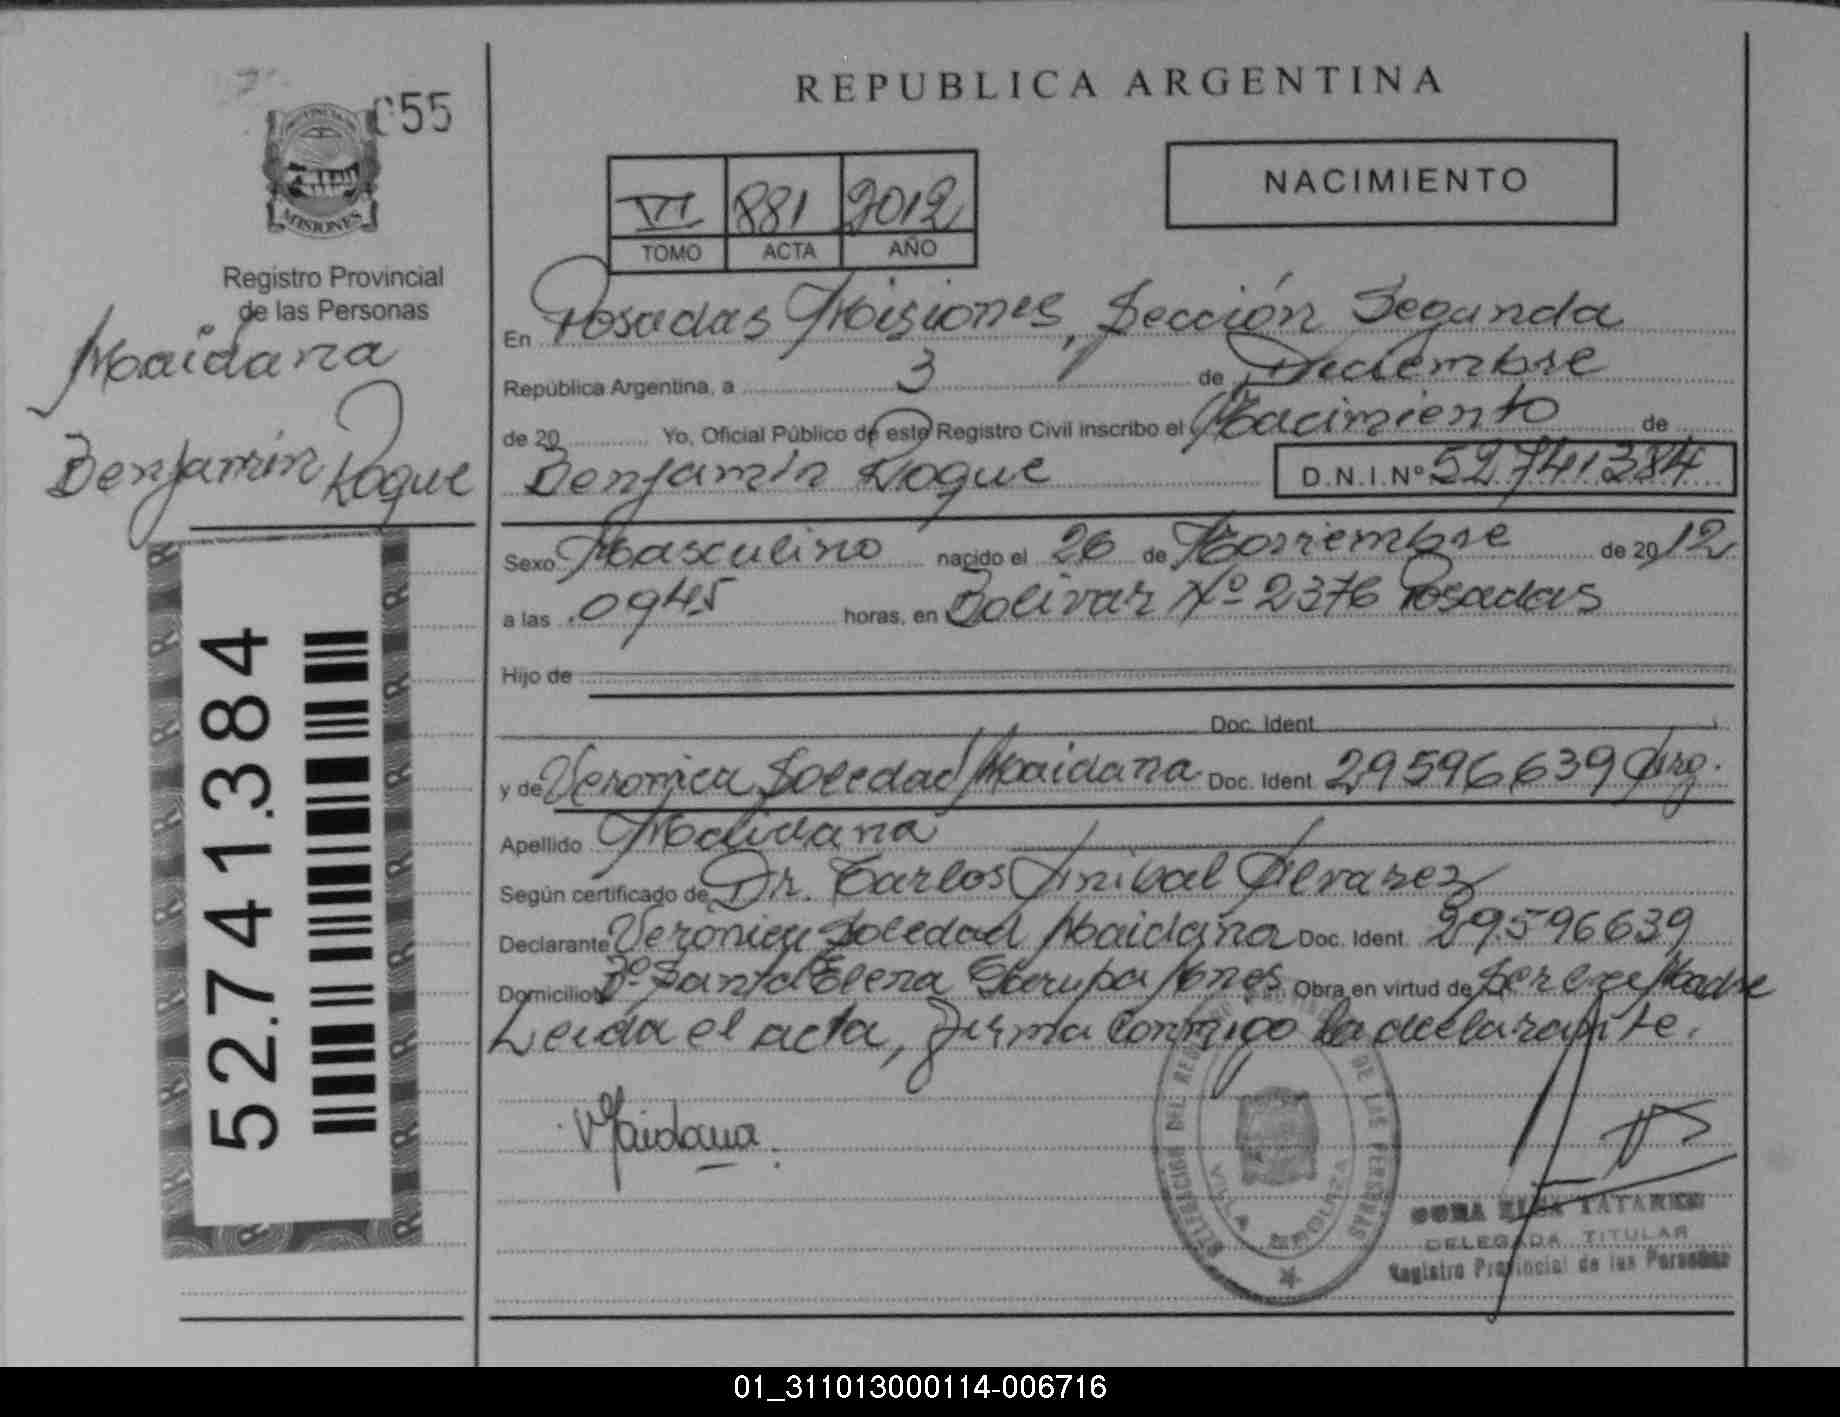 055
MISIONES
Registro Provincial
de las Personas
Maidana
Benjamín Roque
52.741.384
REPUBLICA ARGENTINA
NACIMIENTO
VI 881 2012
TOMO ACTA AÑO
En Posadas Misiones, Sección Segunda
República Argentina, a 3 de Diciembre
de 20 Yo, Oficial Público de este Registro Civil inscribo el Nacimiento de
Benjamín Roque D.N.I.Nº 52741384
Sexo Masculino nacido el 26 de Noviembre de 20 12
a las 0945 horas, en Bolivar Nº 2376 Posadas
Hijo de
Doc. Ident.
y de Veronica Soledad Maidana Doc. Ident. 29596639 Arg.
Apellido Maidana
Según certificado de Dr. Carlos Anibal Alvarez
Declarante Veronica Soledad Maidana Doc. Ident. 29596639
Domicilio Bº Santa Elena Garupa Mnes Obra en virtud de Ser la Madre
Leida el acta, firma conmigo la declarante.
VMaidana
DELEGACION DEL REGISTRO DE LAS PERSONAS
VILLA URQUIZA
ELSA TATAREN
DELEGADA TITULAR
Registro Provincial de las Personas
01_311013000114-006716